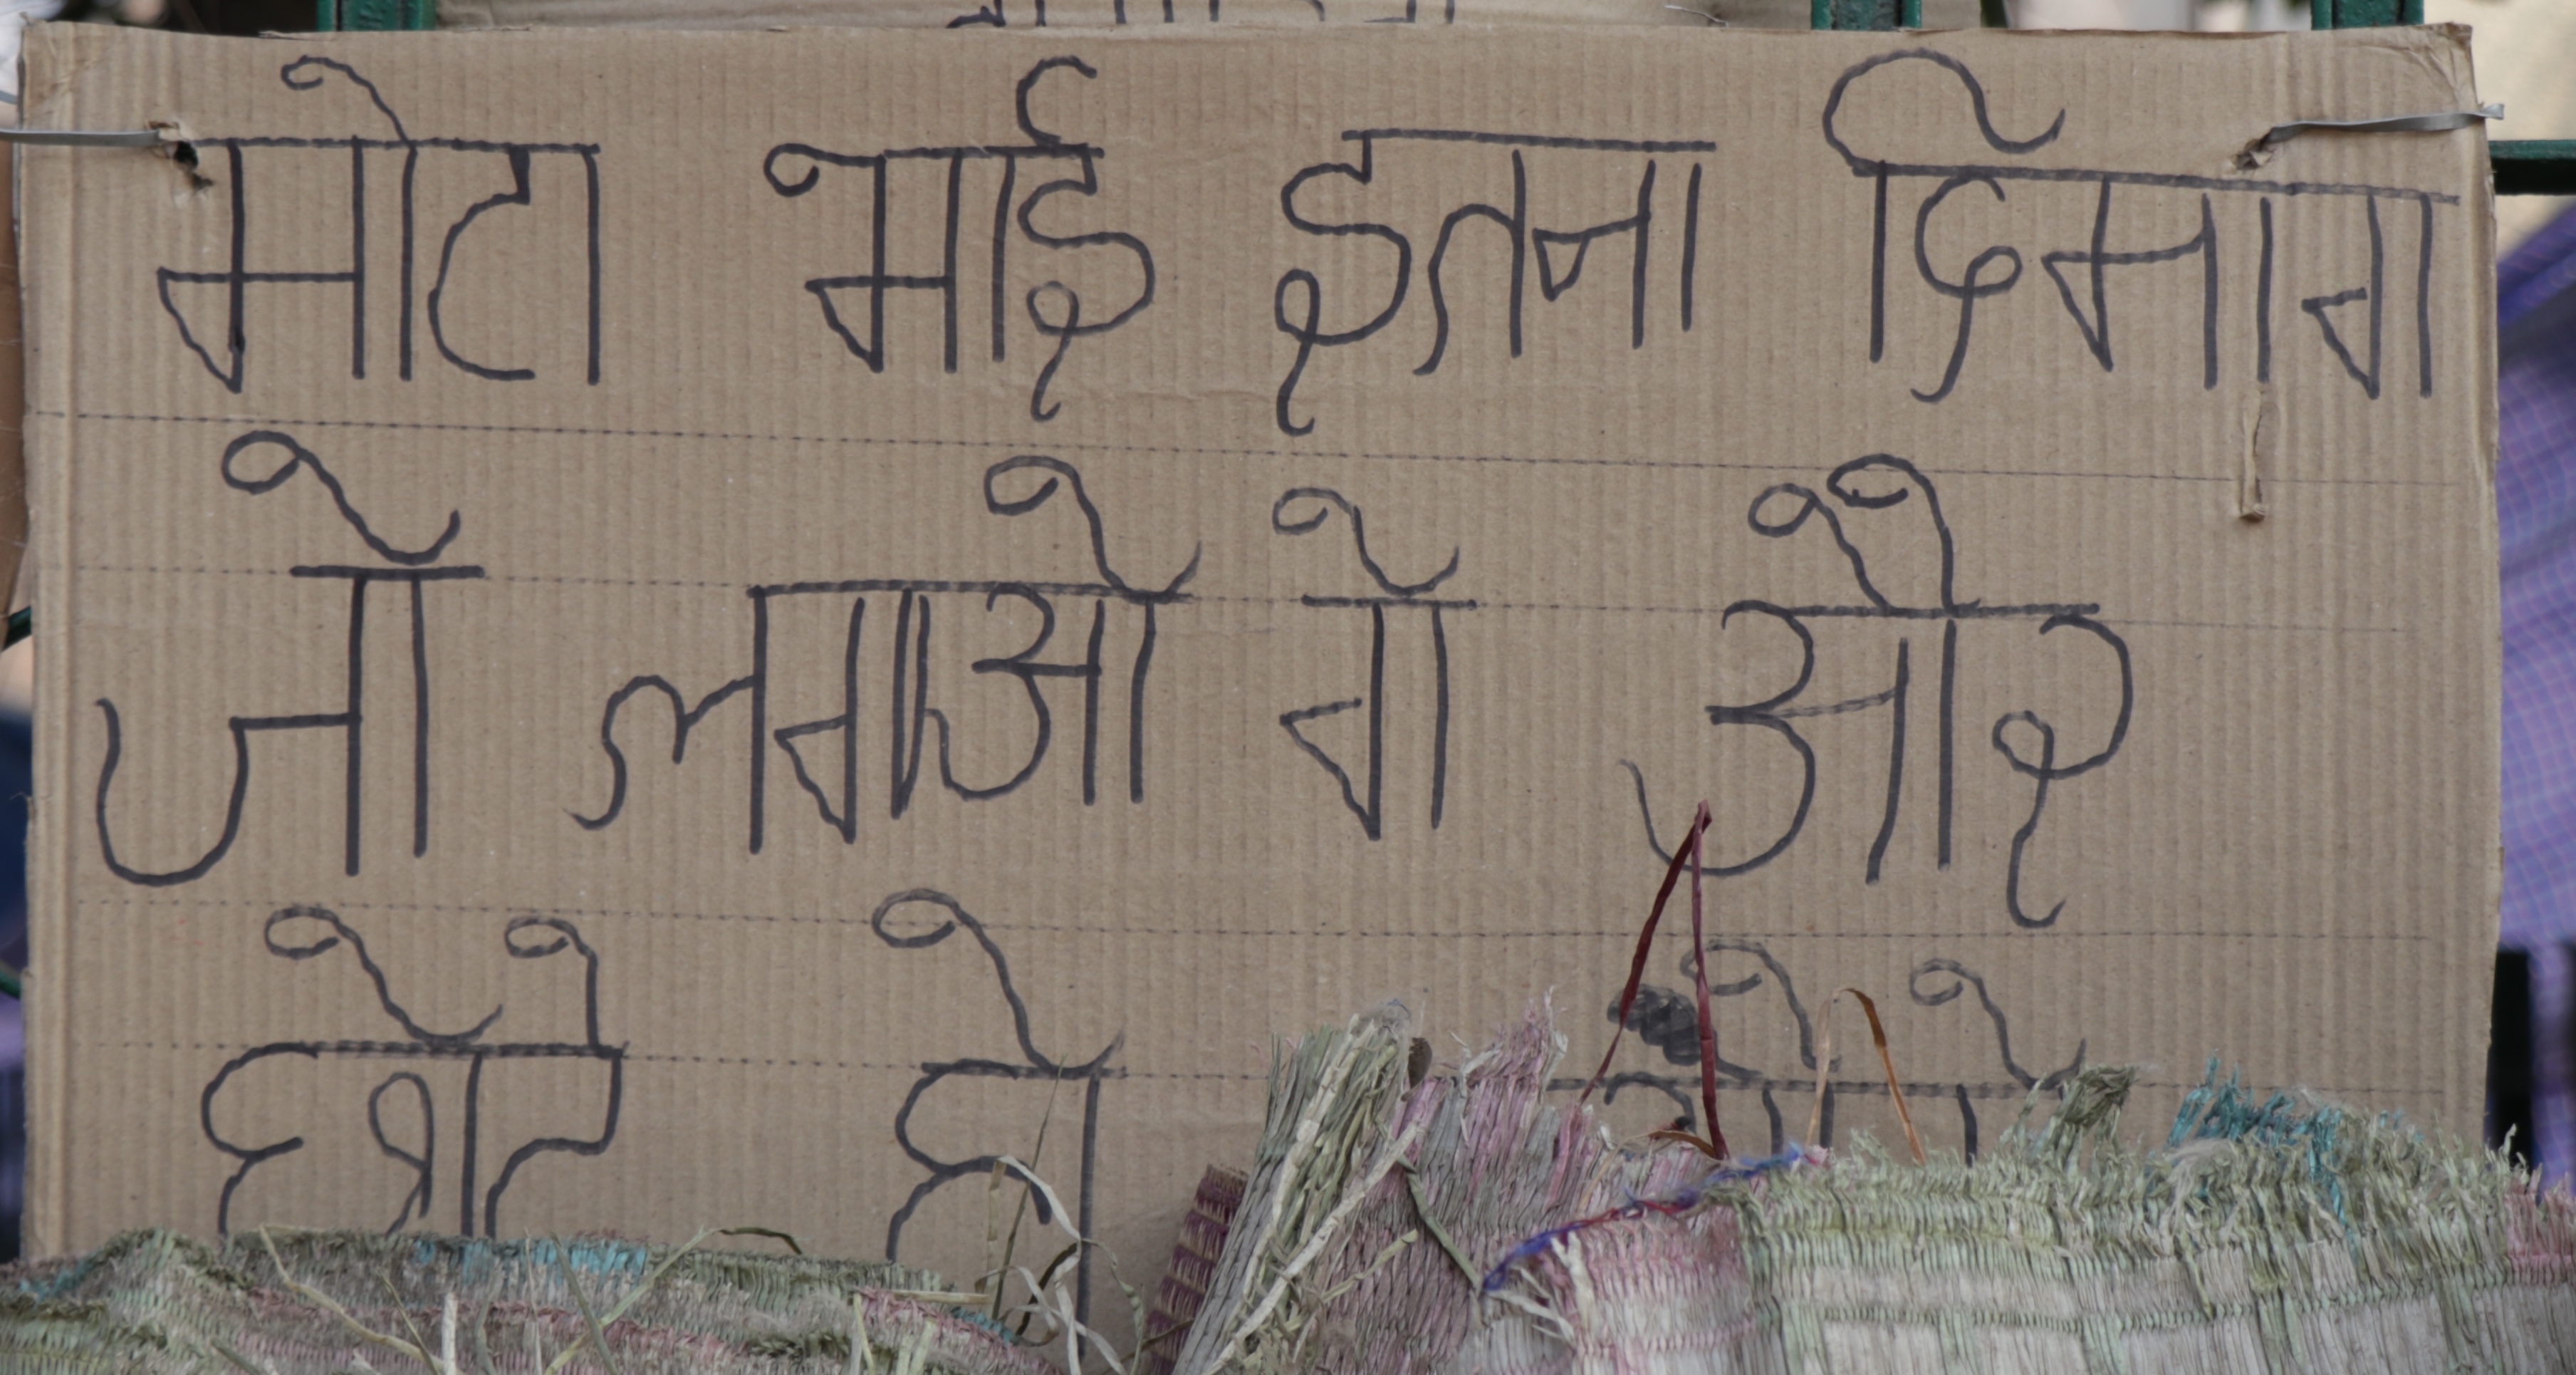 मोटा भाई इतना दिमाग
जो लगाओ गे और
छोटे हो